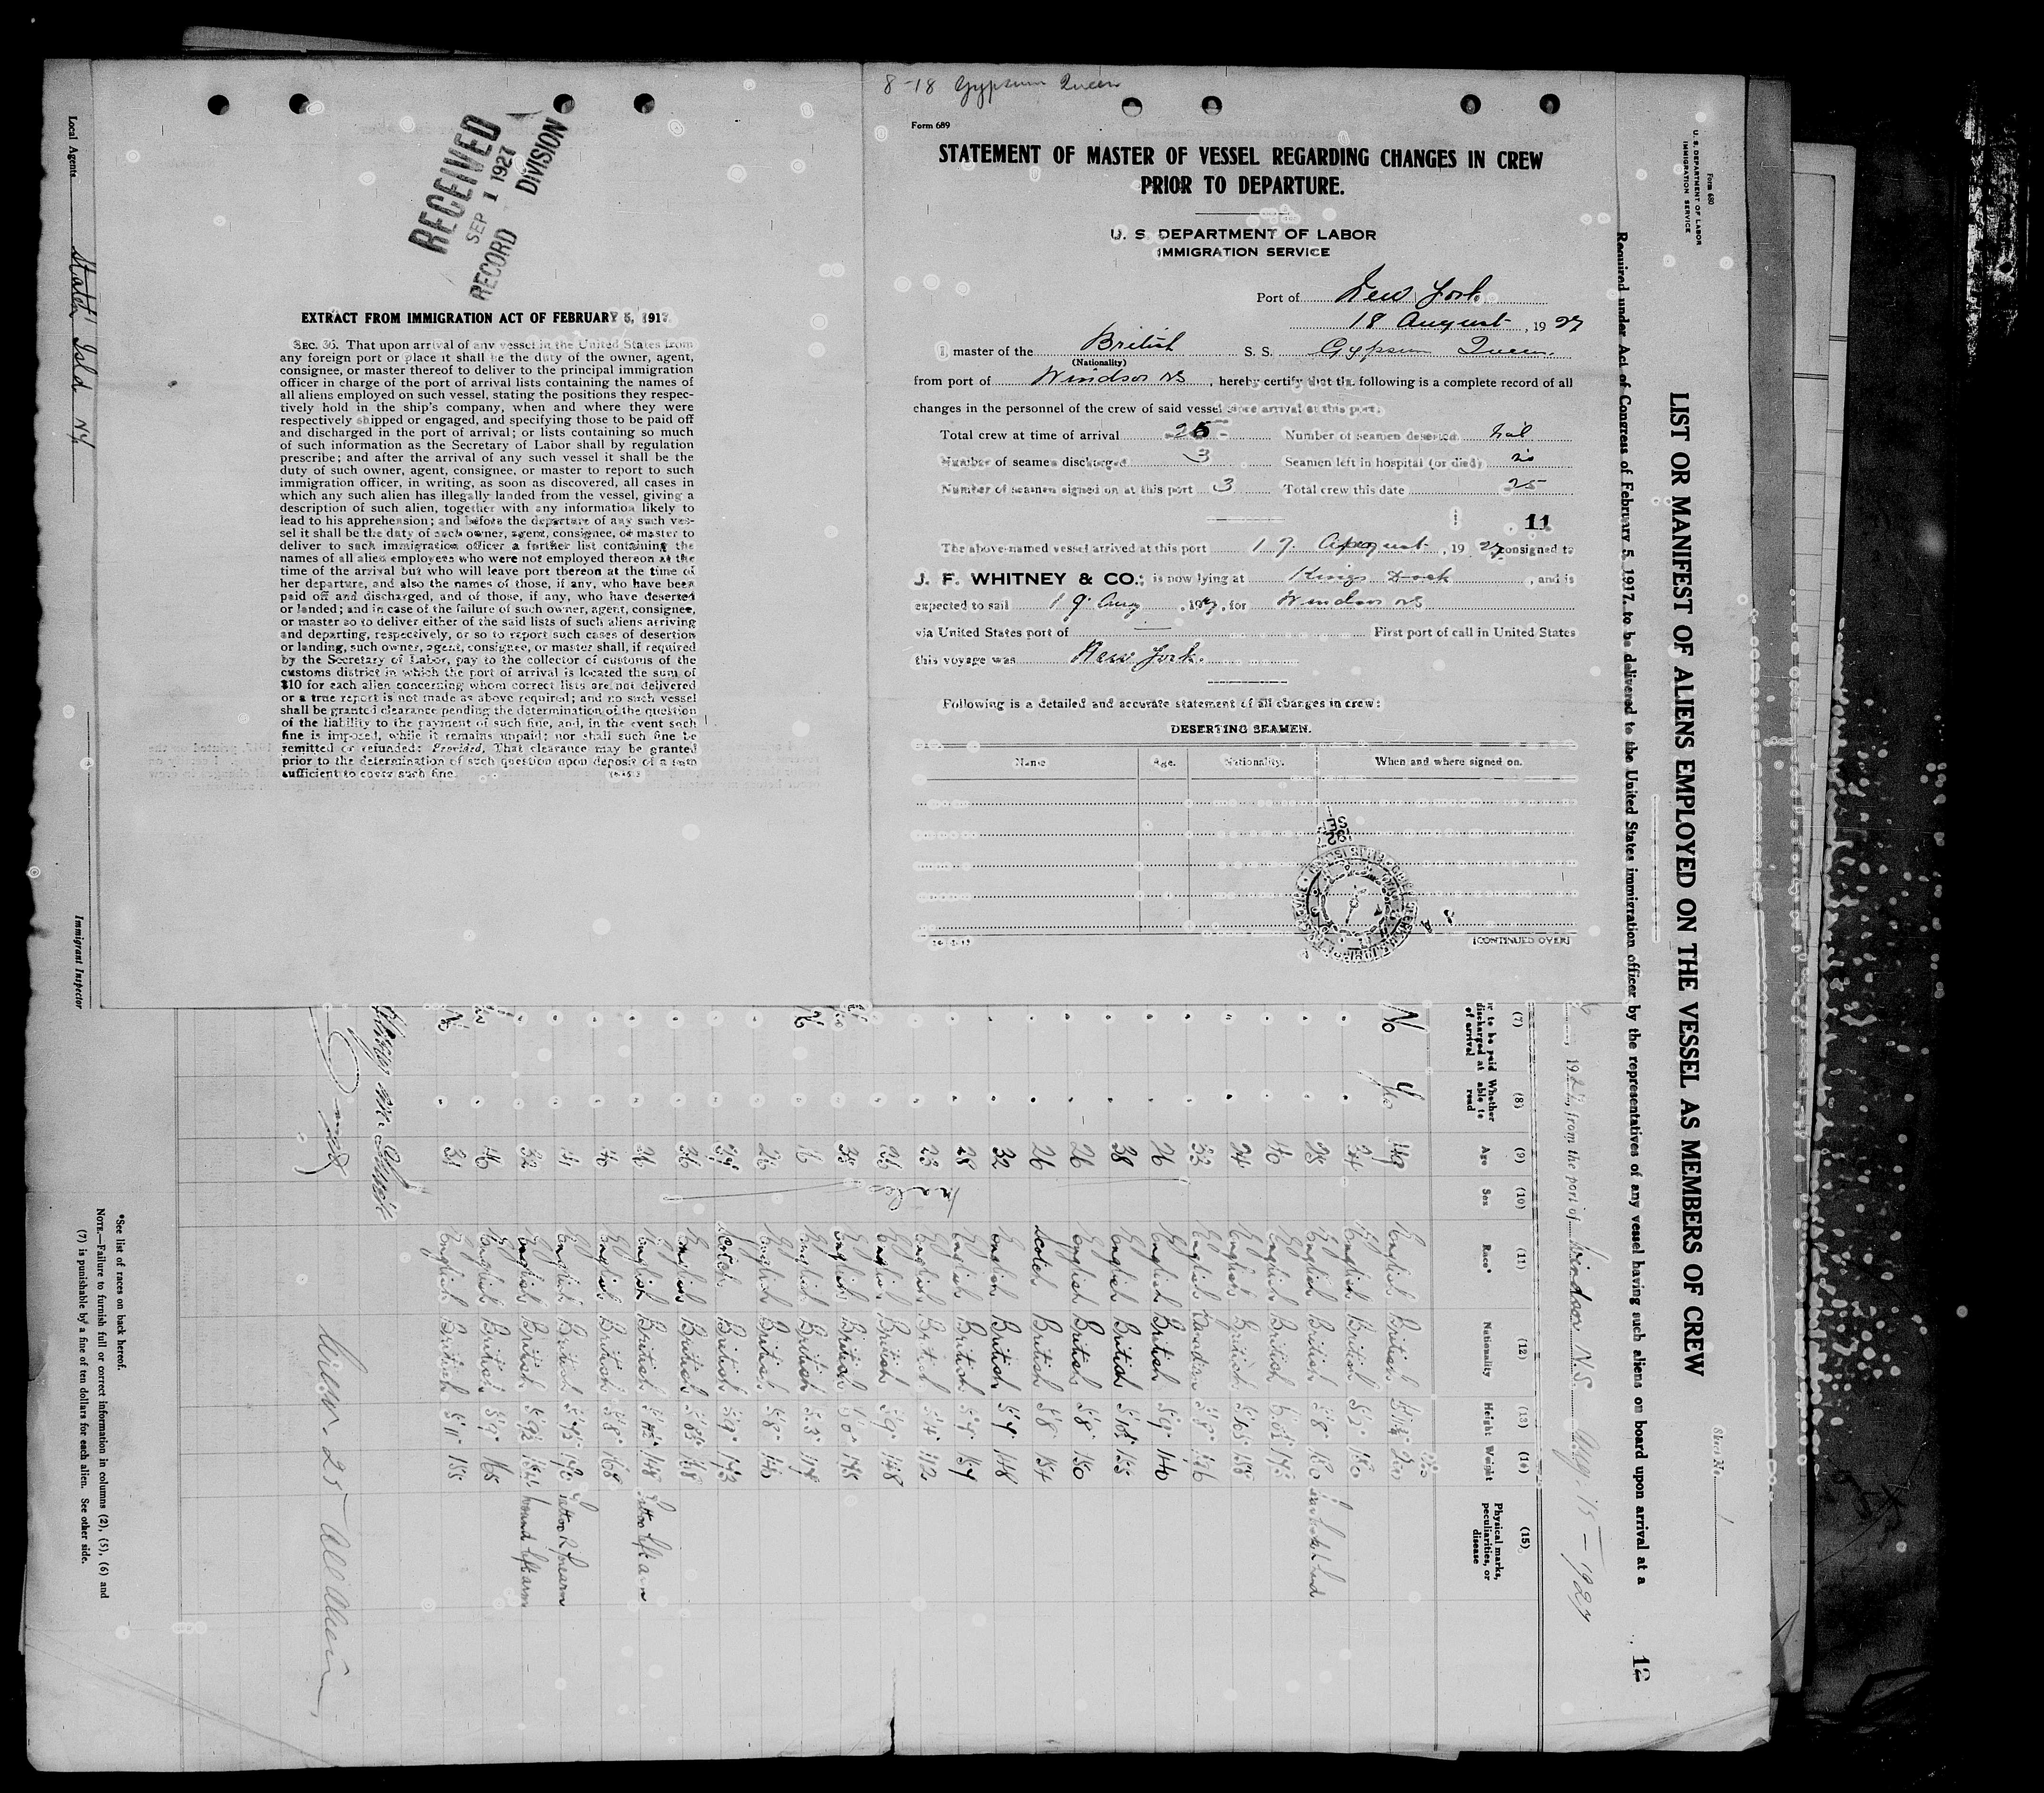 8-18 Gypsum Queen
Form 689
STATEMENT OF MASTER OF VESSEL REGARDING CHANGES IN CREW
PRIOR TO DEPARTURE.
U. S. DEPARTMENT OF LABOR
IMMIGRATION SERVICE
Port of New York
18 August, 1927
I, master of the British S. S. Gypsum Queen.
(Nationality)
from port of Windsor NS, hereby certify that the following is a complete record of all
changes in the personnel of the crew of said vessel since arrival at this port.
Total crew at time of arrival 25 Number of seamen deserted nil
Number of seamen discharged 3 Seamen left in hospital (or died)
Number of seamen signed on at this port 3 Total crew this date 25
11
The above-named vessel arrived at this port 17 August, 1927 consigned to
J. F. WHITNEY & CO.; is now lying at Kings Dock, and is
expected to sail 19 Aug, 1927, for Windsor NS
via United States port of — First port of call in United States
this voyage was New York.
Following is a detailed and accurate statement of all changes in crew:
DESERTING SEAMEN.
Name Age. Nationality. When and where signed on.
[CONTINUED OVER]
RECEIVED
SEP 1 1927
RECORD DIVISION
EXTRACT FROM IMMIGRATION ACT OF FEBRUARY 5, 1917.
SEC. 36. That upon arrival of any vessel in the United States from
any foreign port or place it shall be the duty of the owner, agent,
consignee, or master thereof to deliver to the principal immigration
officer in charge of the port of arrival lists containing the names of
all aliens employed on such vessel, stating the positions they respec-
tively hold in the ship's company, when and where they were
respectively shipped or engaged, and specifying those to be paid off
and discharged in the port of arrival; or lists containing so much
of such information as the Secretary of Labor shall by regulation
prescribe; and after the arrival of any such vessel it shall be the
duty of such owner, agent, consignee, or master to report to such
immigration officer, in writing, as soon as discovered, all cases in
which any such alien has illegally landed from the vessel, giving a
description of such alien, together with any information likely to
lead to his apprehension; and before the departure of any such ves-
sel it shall be the duty of such owner, agent, consignee, or master to
deliver to such immigration officer a further list containing the
names of all alien employees who were not employed thereon at the
time of the arrival but who will leave port thereon at the time of
her departure, and also the names of those, if any, who have been
paid off and discharged, and of those, if any, who have deserted
or landed; and in case of the failure of such owner, agent, consignee,
or master so to deliver either of the said lists of such aliens arriving
and departing, respectively, or so to report such cases of desertion
or landing, such owner, agent, consignee, or master shall, if required
by the Secretary of Labor, pay to the collector of customs of the
customs district in which the port of arrival is located the sum of
$10 for each alien concerning whom correct lists are not delivered
or a true report is not made as above required; and no such vessel
shall be granted clearance pending the determination of the question
of the liability to the payment of such fine, and, in the event such
fine is imposed, while it remains unpaid; nor shall such fine be
remitted or refunded: Provided, That clearance may be granted
prior to the determination of such question upon deposit of a sum
sufficient to cover such fine.
Form 680
U. S. DEPARTMENT OF LABOR
IMMIGRATION SERVICE
Sheet No. 1
LIST OR MANIFEST OF ALIENS EMPLOYED ON THE VESSEL AS MEMBERS OF CREW
Required under Act of Congress of February 5, 1917, to be delivered to the United States immigration officer by the representatives of any vessel having such aliens on board upon arrival at a
12
, 1927, from the port of Windsor N.S. Aug. 15 — 1927
(7) (8) (9) (10) (11) (12) (13) (14) (15)
or to be paid discharged at of arrival
Whether able to read
Age
Sex
Race*
Nationality
Height
Weight
Physical marks, peculiarities, or disease
No Yes English British
34 English British 5'2"
28 English British 5'8" 150
40 English British
24 English British
33 English
26 English British 5'9" 140
38 English British 155
26 English British 5'8" 150
26 Scotch British 5'8" 154
32 English British 5'7" 148
28 English British
23 English British
English British 5'9" 148
35 English British
No English British
26 English British 5'8"
Scotch British 5'9"
36 English British
26 English British 148 Tattoo left arm
40 English British 5'8" 168
41 English British Tattoo R forearm
32 English British wound left arm
46 English British 5'9" 165
No 31 English British 5'11" 155
Crew 25 All Alien
*See list of races on back hereof.
NOTE.—Failure to furnish full or correct information in columns (2), (5), (6) and
(7) is punishable by a fine of ten dollars for each alien. See other side.
Local Agents Staten Isld NY
Immigrant Inspector